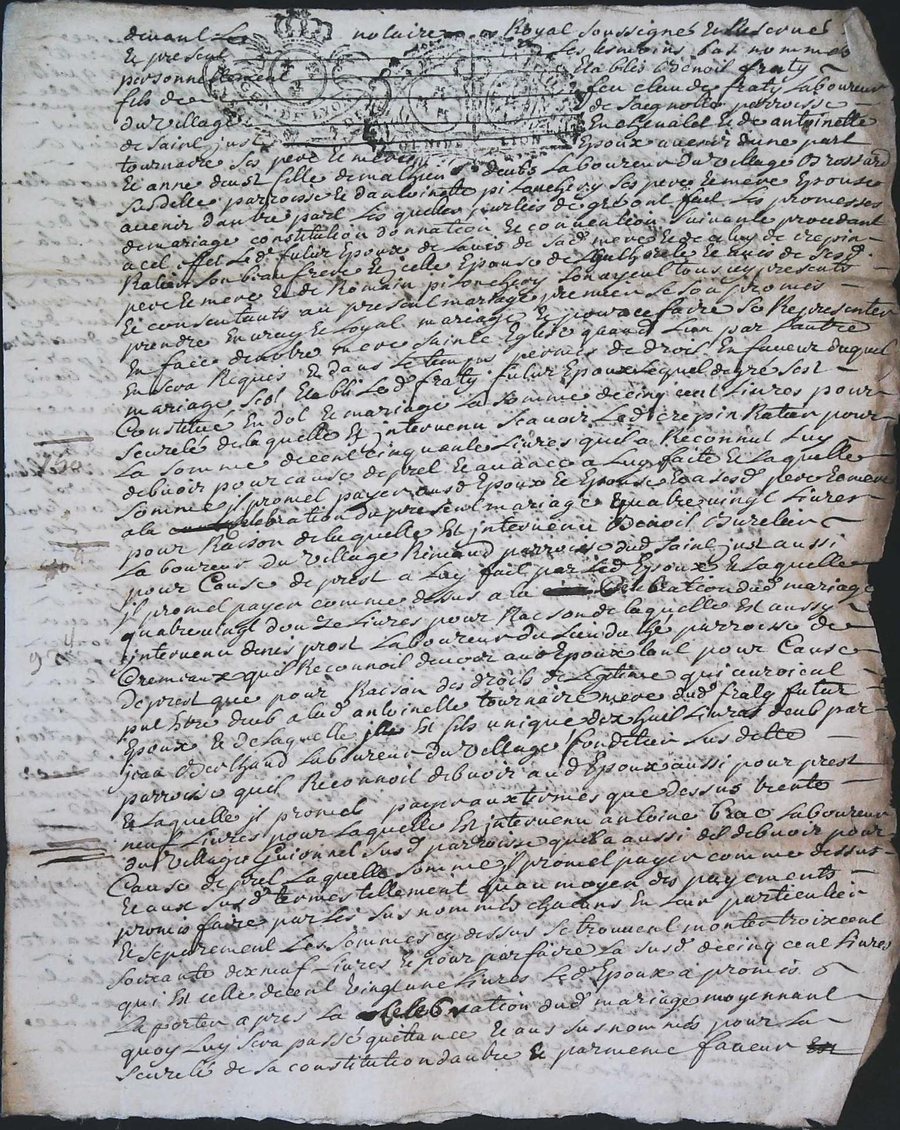 devant Le notaire Royal soussigné et Reservé
et present Les temoins bas nommés
personnellement Etablis Benoit fraty
fils de feu claude fraty Laboureur
du village de parroisse
de Saint just En chevalet Et de antoinette
tournaire Ses pere Et mere Epoux avenir dune part
Et anne fille de mathieu Laboureur du village Brossard
Susditte parroisse Et dantoinette pitonchery Ses pere Et mere Epouse
avenir dautre part Les quelles parties de gré ont fait Les promesses
de mariage constitution donnation Et convention Suivante procedant
a cet effet Led futur Epoux de Lavis de Sad mere Et de crepin
Ratier Son beaufrere Et icelle Epouse de Lauthorité Et avis de Sesd
pere Et mere Et de Romain pitonchery Son ayeul tous icy presents
Et consentants au present mariage premierement Se Sont promis
prendre En vray Et Loyal mariage Et pour ce faire Se Representer
En face de notre mere Sainte Eglise quand Lun par Lautre
En Sera Requis Et dans Le temps permis de droit En faveur duquel
mariage Sest Etabli Led fraty futur Epoux Lequel de gré Sest
Constitué En dot Et mariage La Somme de cinq cent Livres pour
Seureté de laquelle Est intervenu Scavoir Led crepin Ratier pour
La Somme de cent cinquante Livres quil a Reconnut Luy
debvoir pour cause de pret Et avance a Luy faite Et Laquelle
Somme il promet payer ausd Epoux Et Epouse Et a Sesd pere Et mere
a la Celebration du present mariage quatre vingt Livres
pour Raison de laquelle Est intervenu Benoit Burelier
Laboureur du village Rimaud parroisse dud Saint just aussi
pour Cause de prest a Luy fait par Led Epoux Et Laquelle
il promet payer comme dessus a la Celebration dud mariage
quatre vingt douze Livres pour Raison de laquelle Est aussy
intervenu denis prost Laboureur du Lieu du parroisse de
Cremeaux quil Reconnoit devoir aud Epoux tant pour Cause
de prest que pour Raison des droits de Legitime qui auroient
put Etre deub a lad antoinette tournaire mere dud fraty futur
Epoux Et de laquelle Est fils unique dix huit Livres deub par
jean Berthaud Laboureur du village fonditier Susditte
parroisse quil Reconnoit debvoir aud Epoux aussi pour prest
Et Laquelle il promet payer aux termes que dessus trente
neuf Livres pour Laquelle Est intervenu antoine brac Laboureur
du village Guionnet Susd parroisse quil a aussi dit debvoir pour
Cause de pret Laquelle Somme il promet payer comme dessus
Et aux Susd termes tellement quau moyen des payements
promis faire par Les Sus nommés chacuns En Leur particulier
Et Separement Les Sommes cy dessus Se trouvent monter trois cent
Soixante dix neuf Livres Et pour parfaire La Susd de cinq cent Livres
qui Est celle de cent vingt une Livres Led Epoux a promis
La porter apres La celebration dud mariage moyennant
quoy Luy Sera passé quittance Et aus Susnommés pour La
Seureté de Sa constitution dautre Et par meme faveur